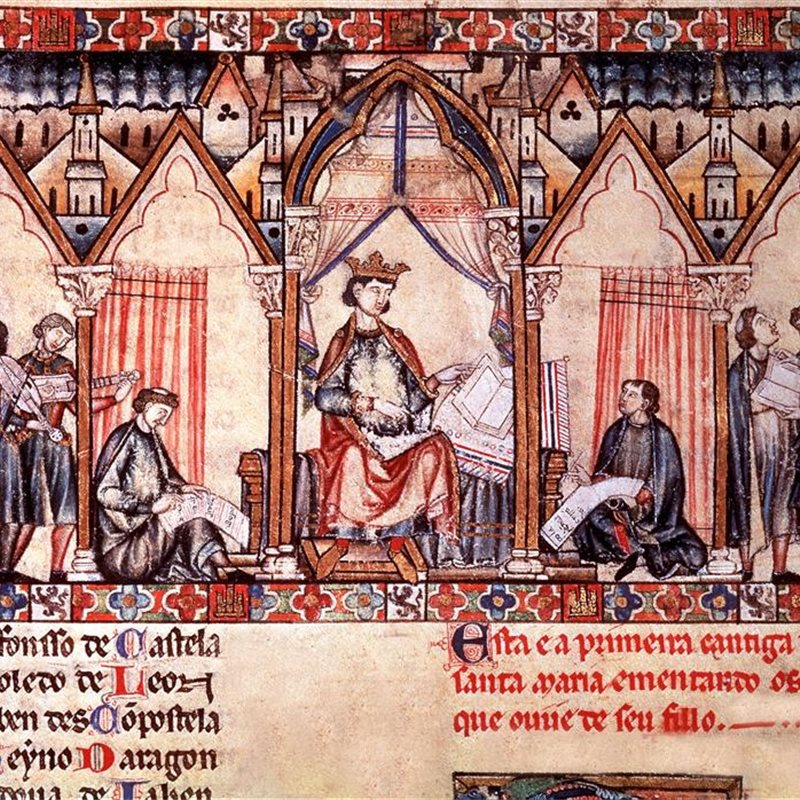 fonsso de Castela
oledo de Leon
ben des Cõpostela
eẏno Daragon
de Iahen
Esta e a primeira cantiga
santa maria ementando os
que ouue de seu fillo.